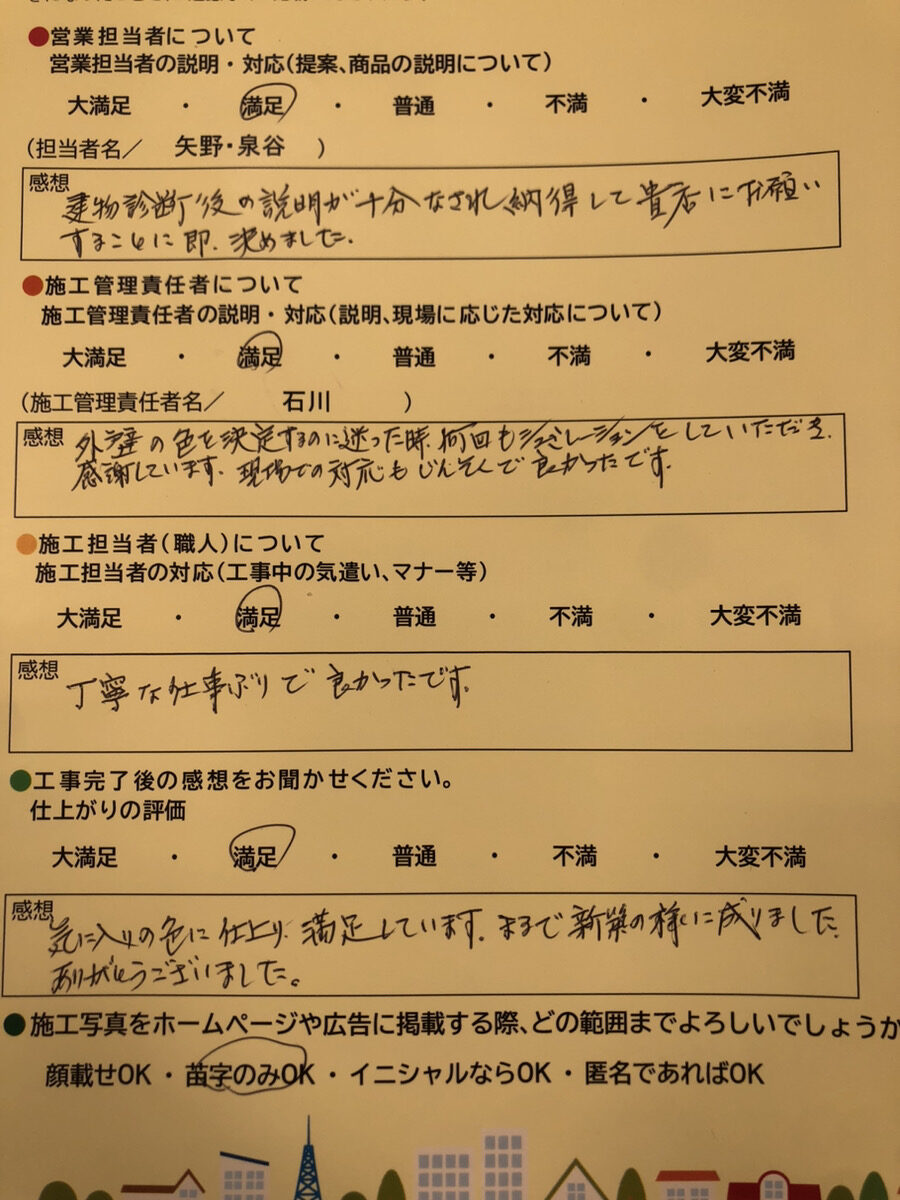 ●営業担当者について
営業担当者の説明・対応(提案、商品の説明について)
大満足 ・ 満足 ・ 普通 ・ 不満 ・ 大変不満
(担当者名／ 矢野・泉谷 )
感想
建物診断後の説明が十分なされ納得して貴店にお願い
することに即、決めました.
●施工管理責任者について
施工管理責任者の説明・対応(説明、現場に応じた対応について)
大満足 ・ 満足 ・ 普通 ・ 不満 ・ 大変不満
(施工管理責任者名／ 石川 )
感想
外壁の色を決定するのに迷った時、何回もシュミレーションをしていただき、
感謝しています. 現場での対応もじんそくで良かったです.
●施工担当者(職人)について
施工担当者の対応(工事中の気遣い、マナー等)
大満足 ・ 満足 ・ 普通 ・ 不満 ・ 大変不満
感想
丁寧な仕事ぶりで良かったです.
●工事完了後の感想をお聞かせください。
仕上がりの評価
大満足 ・ 満足 ・ 普通 ・ 不満 ・ 大変不満
感想
気に入りの色に仕上り、満足しています. まるで新築の様に成りました.
ありがとうございました。
●施工写真をホームページや広告に掲載する際、どの範囲までよろしいでしょうか
顔載せOK・苗字のみOK・イニシャルならOK・匿名であればOK